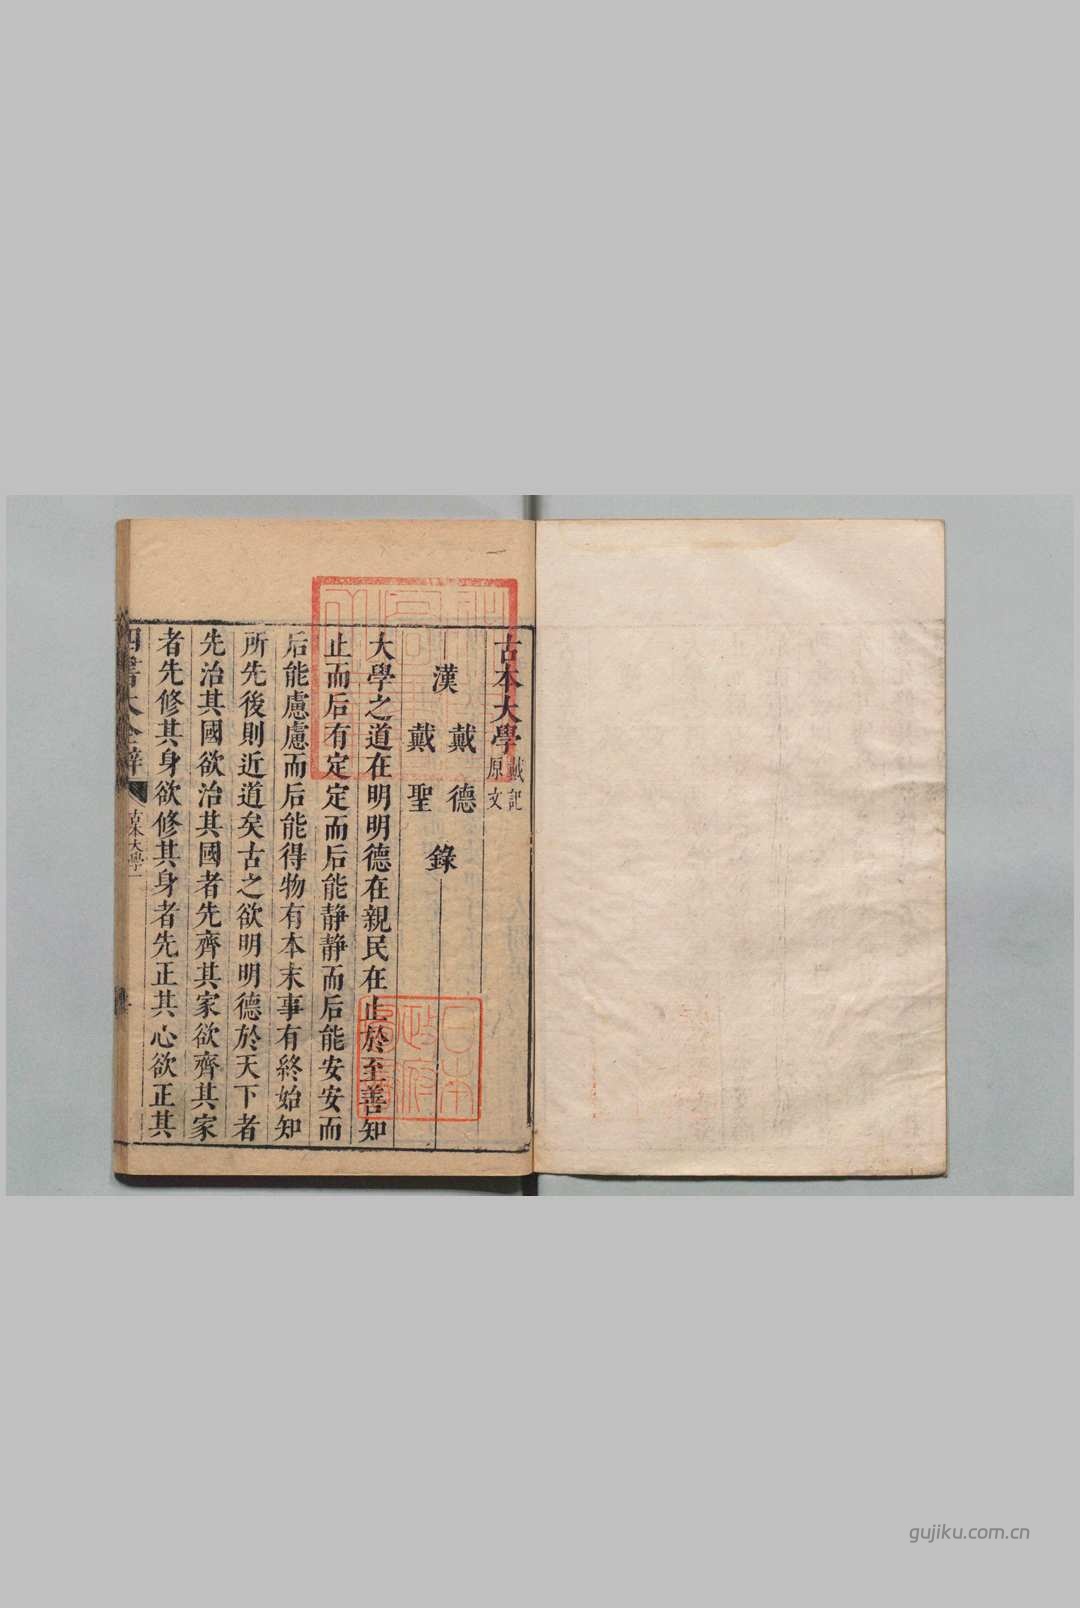 古本大學戴記原文
漢戴德
戴聖
錄
大學之道在明明德在親民在止於至善知
止而后有定定而后能靜靜而后能安安而
后能慮慮而后能得物有本末事有終始知
所先後則近道矣古之欲明明德於天下者
先治其國欲治其國者先齊其家欲齊其家
者先修其身欲修其身者先正其心欲正其
四書大全辯
古本大學一
日本政府圖書
gujiku.com.cn